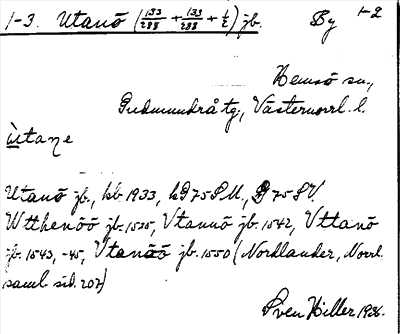 1-3. Utanö (133/288 + 133/288 + 1/2) jb. By 1-2
Hemsö sn.,
Gudmundrå tg, Västernorrl. l.
ùtane
Utanö jb., kb. 1933, hD 75 S.M., 75 S.V.
Wtthenöö jb. 1535, Vtannö jb. 1542, Vttanö
jb. 1543, -45, Vtanöö jb. 1550 (Nordlander, Norrl.
saml. sid. 207)
Sven Hiller 1936.